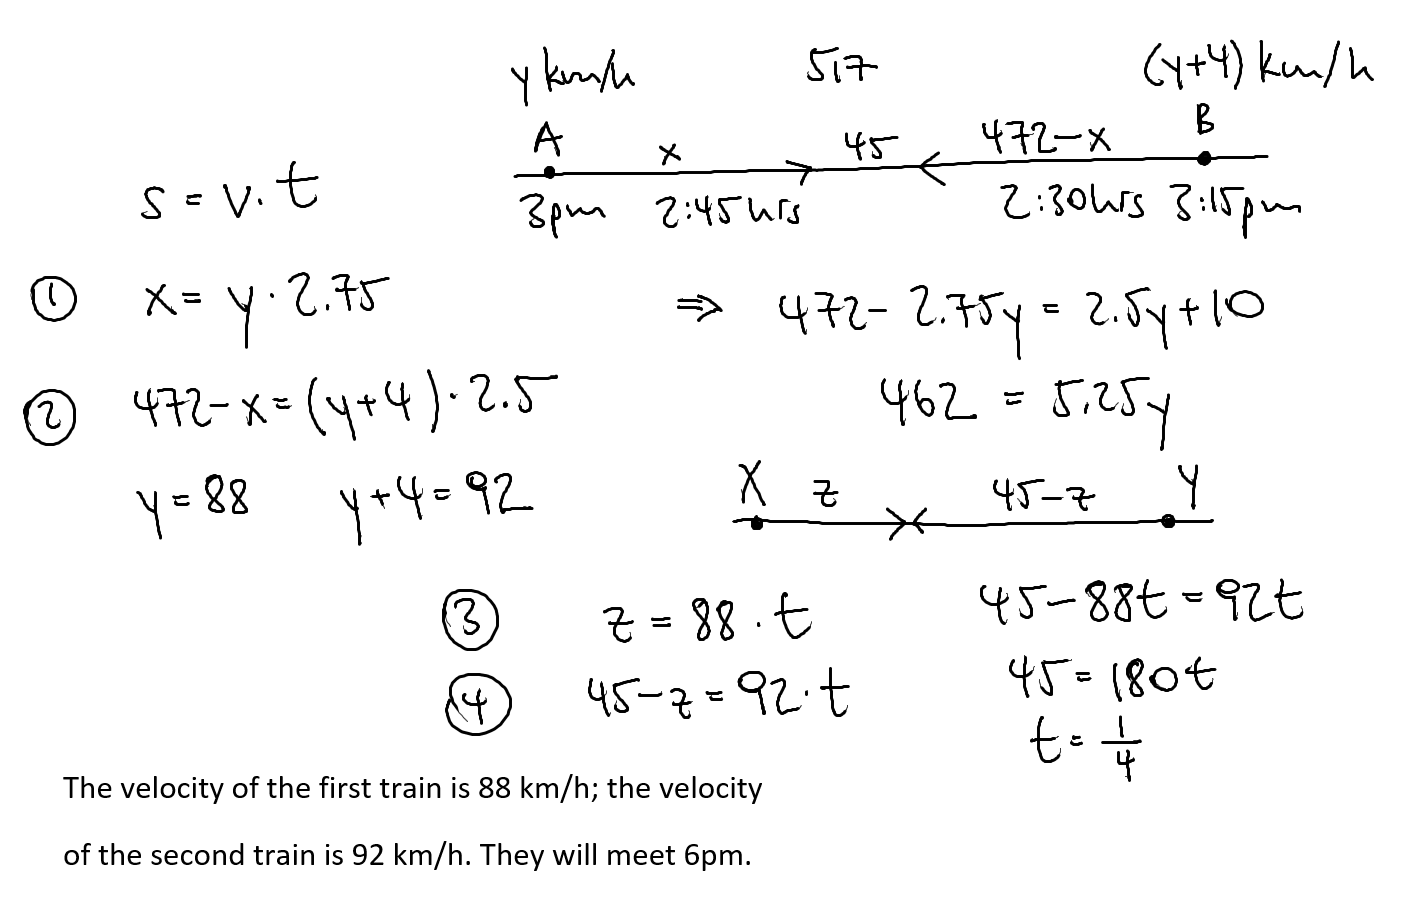 y km/h 517 (y+4) km/h
A x 45 472-x B
s = v.t
3pm 2:45hrs 2:30hrs 3:15pm
① x= y·2.75 ⇒ 472-2.75y = 2.5y+10
② 472-x=(y+4)·2.5 462 = 5.25y
y=88 y+4=92
X z 45-z Y
③ z = 88.t 45-88t=92t
④ 45-z=92.t 45=180t
t=1/4
The velocity of the first train is 88 km/h; the velocity
of the second train is 92 km/h. They will meet 6pm.